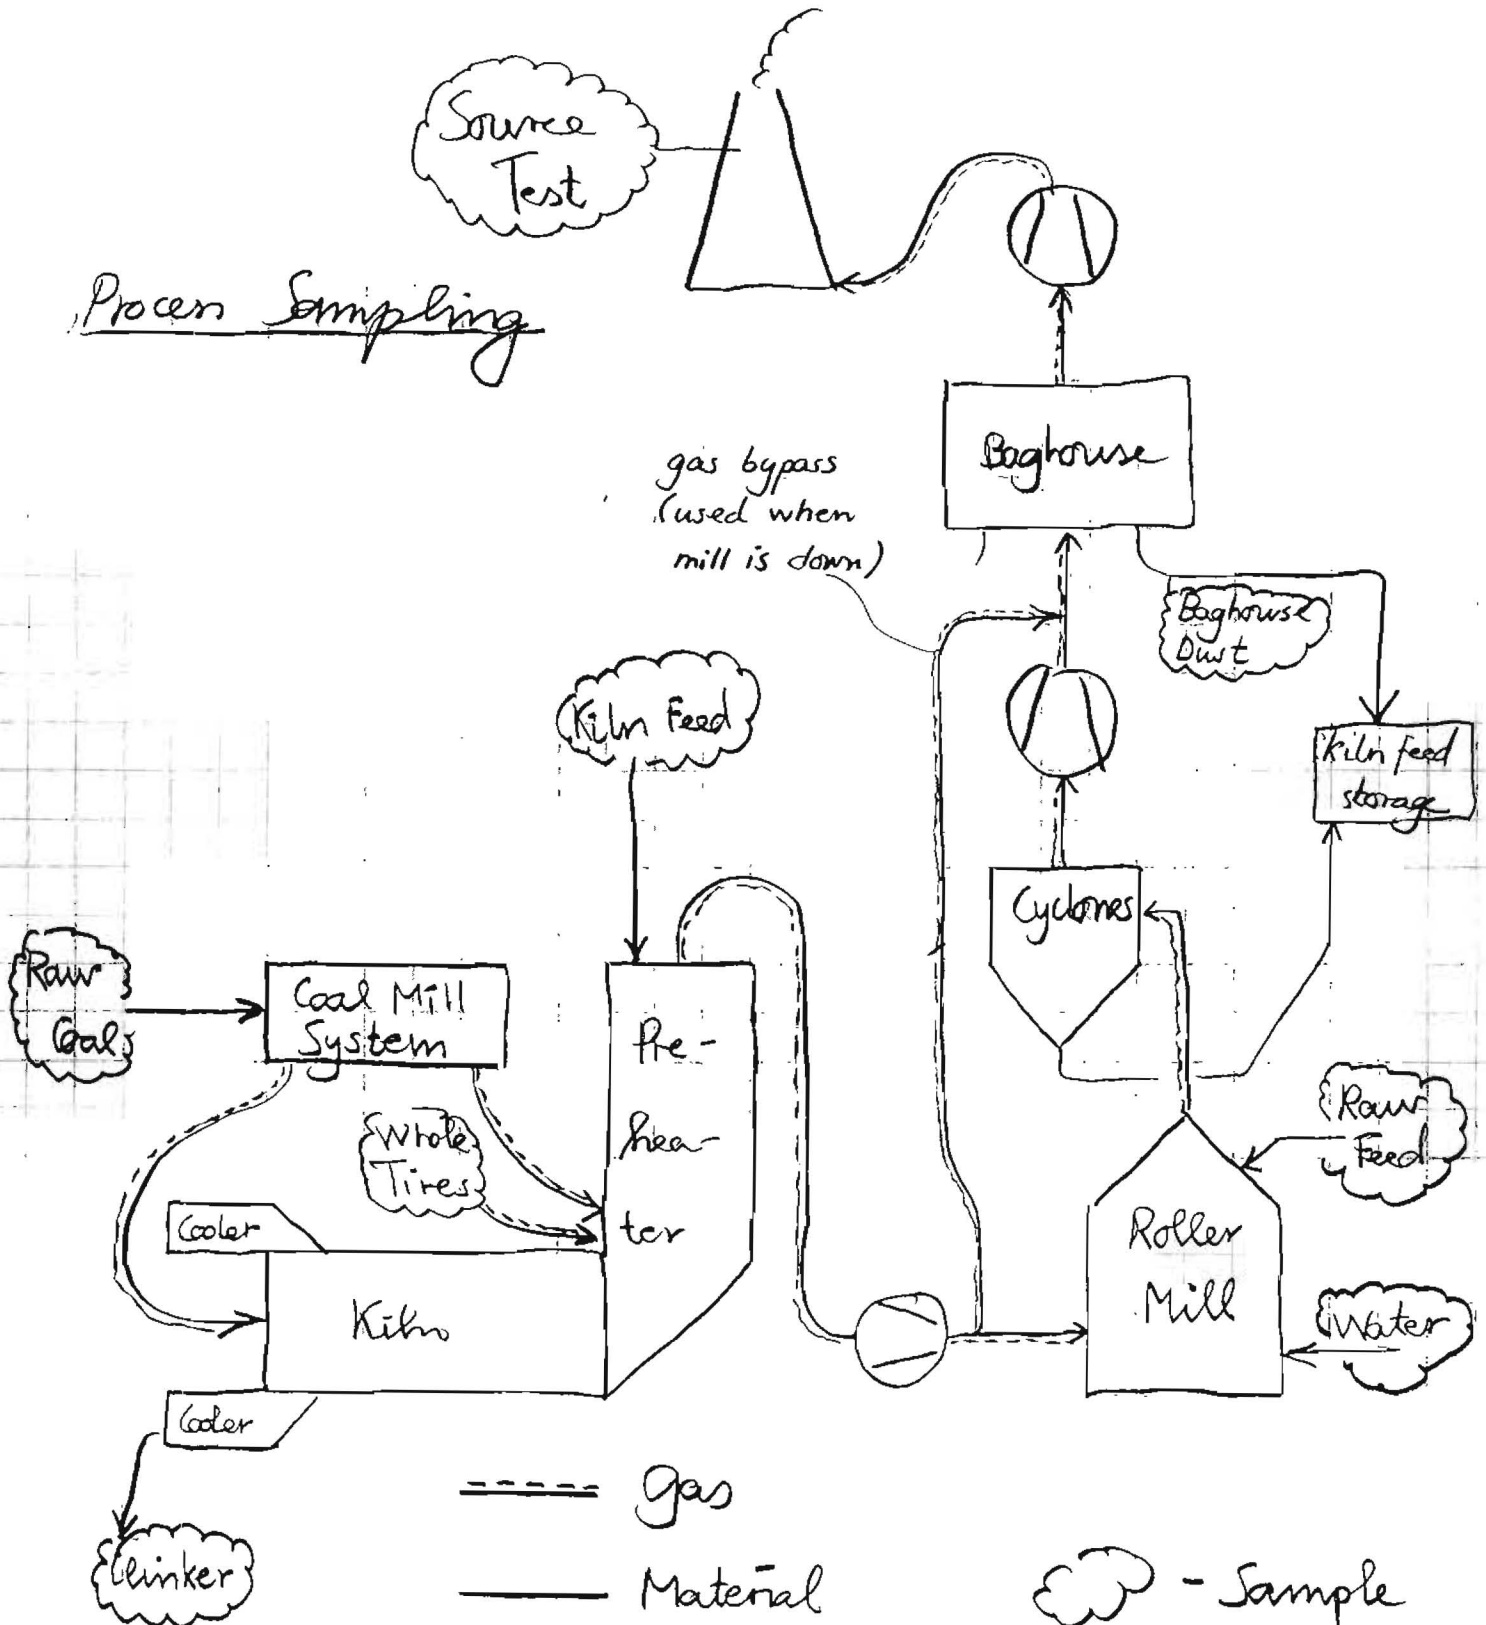 Source
Test
Process Sampling
Baghouse
gas bypass
(used when
mill is down)
Baghouse
Dust
Kiln Feed
kiln feed
storage
Cyclones
Raw
Coal
Coal Mill
System
Pre-
hea-
ter
Whole
Tires
Raw
Feed
Cooler
Roller
Mill
Kiln
Water
Cooler
gas
Clinker
Material
- Sample